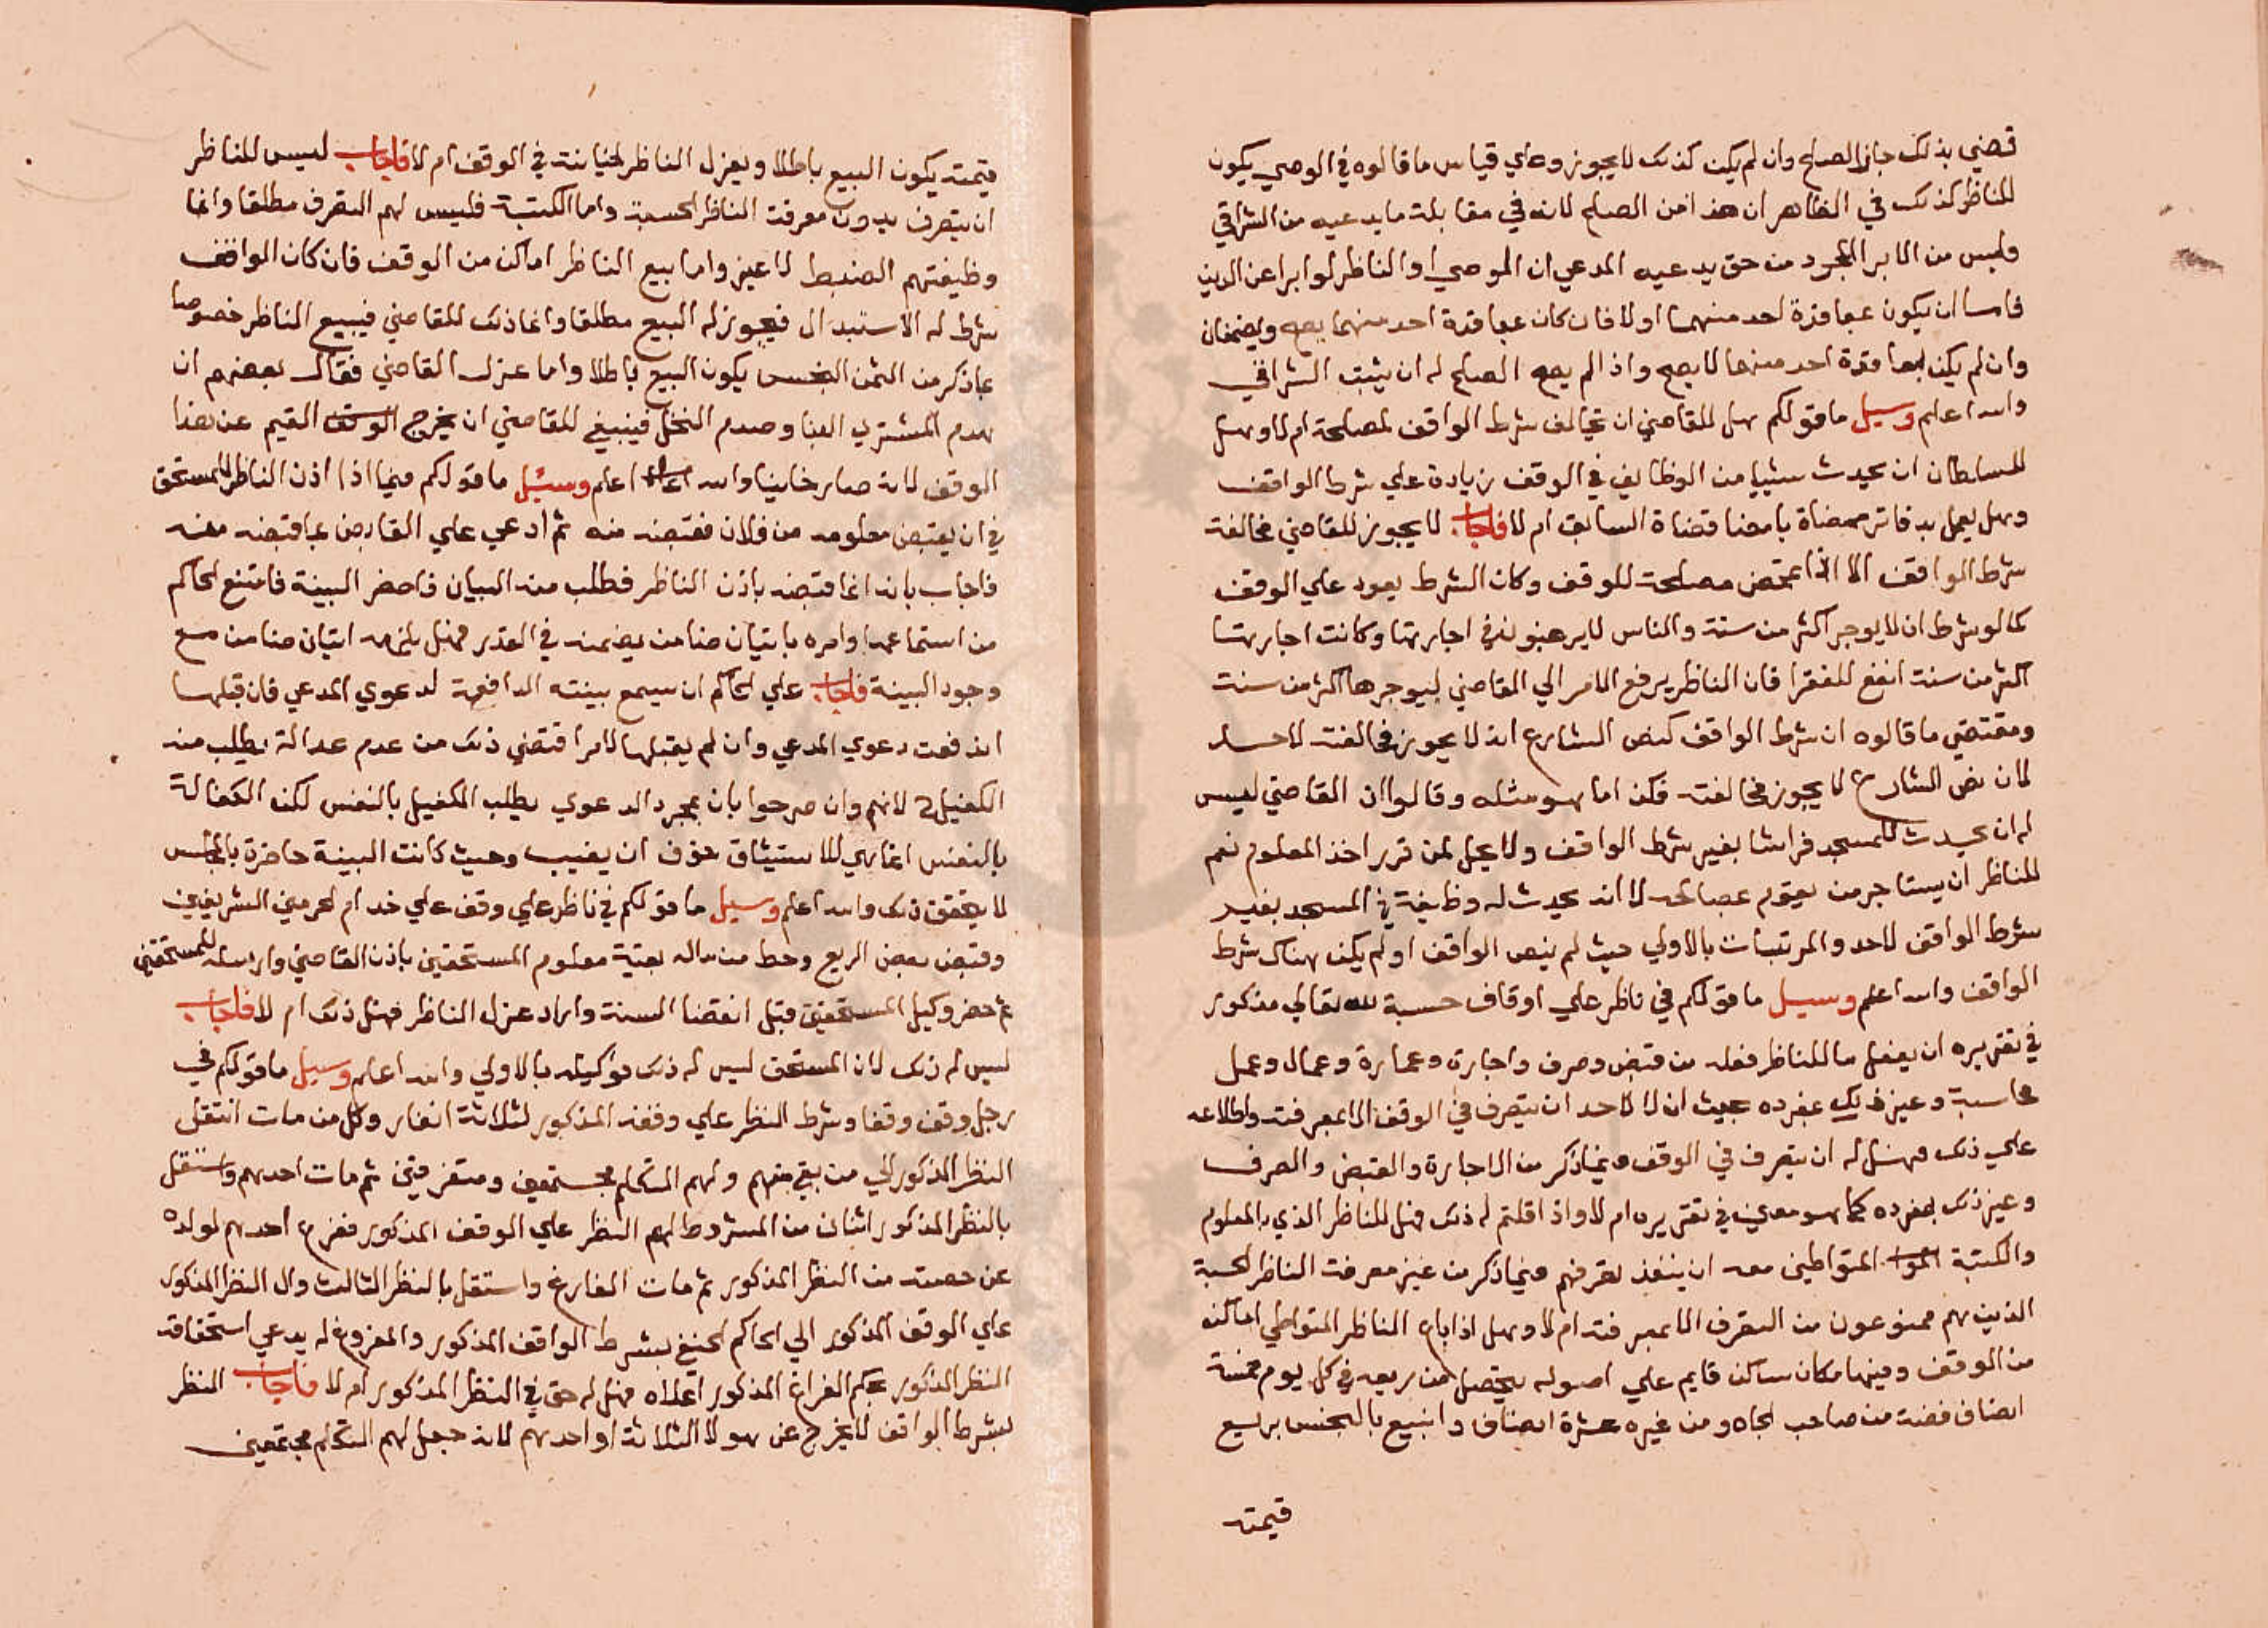 قضي بذلك جاز الصلح وان لم يكن كذلك لا يجوز وعلي قياس ما قالوه في الوصي يكون
للناظر كذلك في الظاهر ان هذا من الصلح لانه في مقابلة ما يدعيه من الشراقي
وليس من الابرا المجرد من حق يدعيه المدعي ان الموصي او الناظر لو ابرا عن الدين
فاما ان يكون عاقده احد منهما او لا فان كان عاقده احد منهما يصح ويضمنان
وان لم يكن عاقده احد منهما لا يصح واذا لم يصح الصلح له ان يثبت الشراقي
والله اعلم وسيل ما قولكم هل للقاضي ان يخالف شرط الواقف لمصلحة ام لا وهل
للسلطان ان يحدث شيا من الوظايف في الوقف زيادة علي شرط الواقف
وهل يعمل بدفاتر ممضاة بامضا قضاة السابق ام لا فاجاب لا يجوز للقاضي مخالفة
شرط الواقف الا اذا تمحض مصلحة للوقف وكان الشرط يعود علي الوقف
كما لو شرط ان لا يوجر اكثر من سنة والناس لا يرغبون في اجارتها وكانت اجارتها
اكثر من سنة انفع للفقرا فان الناظر يرفع الامر الي القاضي ليوجرها اكثر من سنة
ومقتضي ما قالوه ان شرط الواقف كنص الشارع انه لا يجوز مخالفته لاحد
لان نص الشارع لا يجوز مخالفته فكذا ما هو مثله وقالوا ان القاضي ليس
له ان يحدث للمسجد فراشا بغير شرط الواقف ولا يحل لمن قرر اخذ المعلوم نعم
للناظر ان يستاجر من يقوم بمصالحه لا انه يحدث له وظيفة في المسجد بغير
شرط الواقف لاحد والمرتبات بالاولي حيث لم ينص الواقف او لم يكن هناك شرط
الواقف والله اعلم وسيل ما قولكم في ناظر علي اوقاف حسبة لله تعالي مذكور
في تقريره ان يفعل ما للناظر فعله من قبض وصرف واجارة وعمارة وعمال وعمل
محاسبة وغير ذلك بمفرده بحيث ان لا لاحد ان يتصرف في الوقف الا بمعرفته واطلاعه
علي ذلك فهل له ان يتصرف في الوقف فيما ذكر من الاجارة والقبض والصرف
وغير ذلك بمفرده كما هو معين في تقريره ام لا واذا قلتم له ذلك فهل للناظر الذي بالمعلوم
والكتبة المتواطين معه ان ينفذ تصرفهم فيما ذكر من غير معرفة الناظر الحسبة
الذين هم ممنوعون من التصرف الا بمعرفته ام لا وهل اذا باع الناظر المتواطي اماكن
من الوقف وفيها مكان ساكن قايم علي اصوله يتحصل من ريعه في كل يوم خمسة
انصاف فضة من صاحب الجاه ومن غيره عشرة انصاف وابيع بالبخس بربع
قيمته
قيمته يكون البيع باطلا ويعزل الناظر لخيانته في الوقف ام لا فاجاب ليس للناظر
ان يتصرف بدون معرفة الناظر الحسبة واما الكتبة فليس لهم التصرف مطلقا وانما
وظيفتهم الضبط لا غير واما بيع الناظر اماكن من الوقف فان كان الواقف
شرط له الاستبدال فيجوز له البيع مطلقا وانما ذلك للقاضي فيبيع الناظر خصوصا
بما ذكر من الثمن البخس يكون البيع باطلا واما عزل القاضي فقال بعضهم ان
هدم المشتري البنا وصرم النخل فينبغي للقاضي ان يخرج القيم عن هذا
الوقف لانه صار خاينا والله اعلم وسيل ما قولكم فيما اذا اذن الناظر للمستحق
في ان يقبض معلومه من فلان فقبضه منه ثم ادعي علي القابض بما قبضه منه
فاجاب بانه انما قبضه باذن الناظر فطلب منه البيان فاحضر البينة فامتنع الحاكم
من استماعها وامره باتيان ضامن يضمنه في القدر فهل يلزمه اتيان ضامن مع
وجود البينة فاجاب علي الحاكم ان يسمع بينته الدافعة لدعوي المدعي فان قبلها
اندفعت دعوي المدعي وان لم يقبلها لامر اقتضي ذلك من عدم عدالة يطلب منه
الكفيل لانهم وان صرحوا بان بمجرد الدعوي يطلب الكفيل بالنفس لكن الكفالة
بالنفس انما هي للاستيثاق خوف ان يغيب وحيث كانت البينة حاضرة بالمجلس
لا يتحقق ذلك والله اعلم وسيل ما قولكم في ناظر علي وقف علي خدام الحرمين الشريفين
وقبض بعض الريع وحط من ماله بقية معلوم المستحقين باذن القاضي وارسله للمستحقين
ثم حضر وكيل المستحقين قبل انقضا السنة واراد عزل الناظر فهل ذلك ام لا فاجاب
ليس له ذلك لان المستحق ليس له ذلك فوكيله بالاولي والله اعلم وسيل ما قولكم في
رجل وقف وقفا وشرط النظر علي وقفه المذكور لثلاثة انفار وكل من مات انتقل
النظر المذكور الي من بقي منهم ولهم التكلم مجتمعين ومتفرقين ثم مات احدهم واستقل
بالنظر المذكور اثنان من المشروط لهم النظر علي الوقف المذكور ففرغ احدهم لولده
عن حصته من النظر المذكور ثم مات الفارغ واستقل بالنظر الثالث وال النظر المذكور
علي الوقف المذكور الي الحاكم الحنفي بشرط الواقف المذكور والمفروغ له يدعي استحقاقه
النظر المذكور بحكم الفراغ المذكور اعلاه فهل له حق في النظر المذكور ام لا فاجاب النظر
بشرط الواقف لا يخرج عن هولا الثلاثة او احدهم لانه جعل لهم التكلم مجتمعين